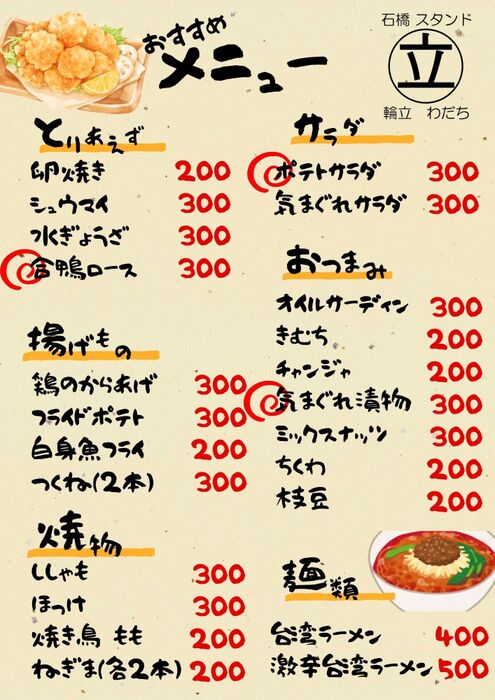 おすすめ
メニュー
石橋 スタンド
立
輪立 わだち
とりあえず
卵焼き 200
シュウマイ 300
水ぎょうざ 300
合鴨ロース 300
揚げもの
鶏のからあげ 300
フライドポテト 300
白身魚フライ 200
つくね(2本) 300
焼物
ししゃも 300
ほっけ 300
焼き鳥 もも 200
ねぎま(各2本) 200
サラダ
ポテトサラダ 300
気まぐれサラダ 300
おつまみ
オイルサーディン 300
きむち 200
チャンジャ 200
気まぐれ漬物 300
ミックスナッツ 300
ちくわ 200
枝豆 200
麺類
台湾ラーメン 400
激辛台湾ラーメン 500